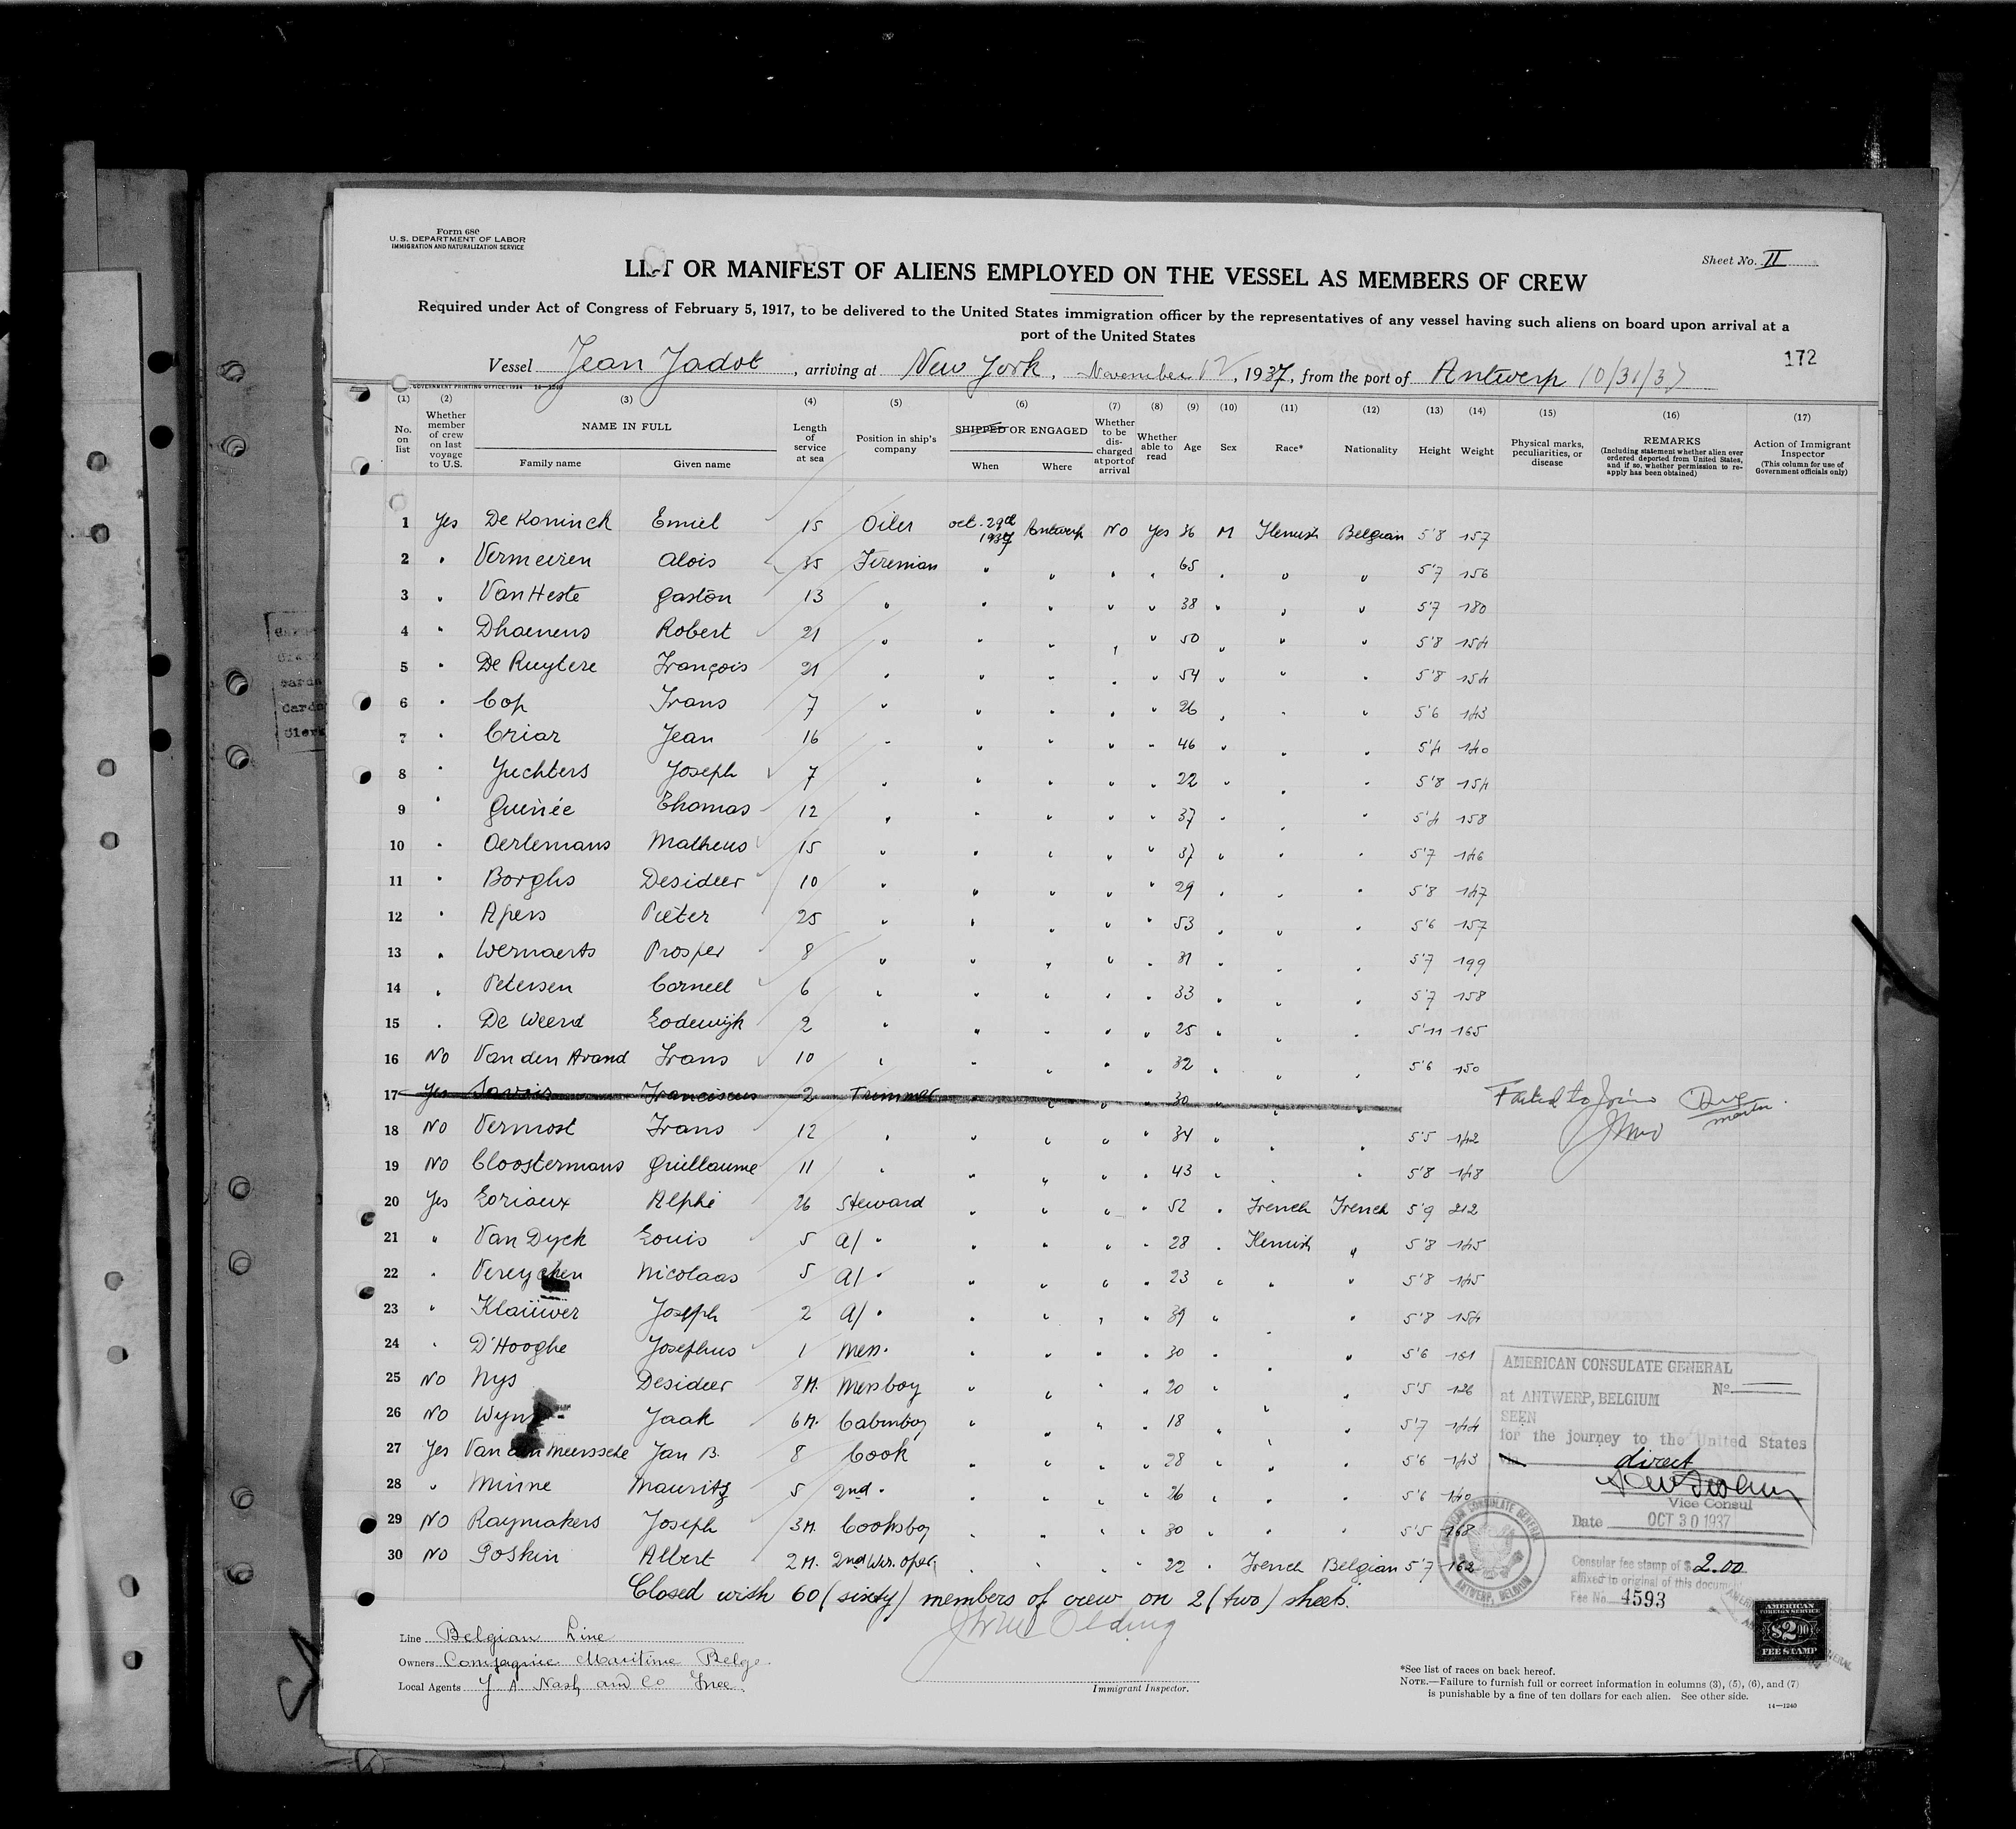 Form 680
U. S. DEPARTMENT OF LABOR
IMMIGRATION AND NATURALIZATION SERVICE
Sheet No. II
LIST OR MANIFEST OF ALIENS EMPLOYED ON THE VESSEL AS MEMBERS OF CREW
Required under Act of Congress of February 5, 1917, to be delivered to the United States immigration officer by the representatives of any vessel having such aliens on board upon arrival at a
port of the United States
172
Vessel Jean Jadot, arriving at New York, November 12, 1937, from the port of Antwerp 10/31/37
(1) (2) (3) (4) (5) (6) (7) (8) (9) (10) (11) (12) (13) (14) (15) (16) (17)
No. on list
Whether member of crew on last voyage to U.S.
NAME IN FULL
Family name Given name
Length of service at sea
Position in ship's company
SHIPPED OR ENGAGED
When Where
Whether to be discharged at port of arrival
Whether able to read
Age Sex Race* Nationality Height Weight
Physical marks, peculiarities, or disease
REMARKS
(Including statement whether alien ever ordered deported from United States, and if so, whether permission to re-apply has been obtained)
Action of Immigrant Inspector
(This column for use of Government officials only)
1 Yes De Koninck Emiel 15 Oiler oct. 29th 1937 Antwerp No Yes 36 M Flemish Belgian 5'8 157
2 " Vermeiren Alois 35 Fireman " " " " 65 " " " 5'7 156
3 " Van Heste Gaston 13 " " " " " 38 " " " 5'7 180
4 " Dhaenens Robert 21 " " " " " 50 " " " 5'8 154
5 " De Ruytere François 21 " " " " " 54 " " " 5'8 154
6 " Cop Frans 7 " " " " " 26 " " " 5'6 143
7 " Criar Jean 16 " " " " " 46 " " " 5'4 140
8 " Juchters Joseph 7 " " " " " 22 " " " 5'8 154
9 " Guinée Thomas 12 " " " " " 37 " " " 5'4 158
10 " Oerlemans Matheus 15 " " " " " 37 " " " 5'7 146
11 " Borghs Desideer 10 " " " " " 29 " " " 5'8 147
12 " Apers Pieter 25 " " " " " 53 " " " 5'6 157
13 " Wernaerts Prosper 8 " " " " " 31 " " " 5'7 199
14 " Petersen Corneel 6 " " " " " 33 " " " 5'7 158
15 " De Weerd Lodewijk 2 " " " " " 25 " " " 5'11 165
16 No Van den Avand Frans 10 " " " " " 32 " " " 5'6 150
17 Yes Franciscus 2 Trimmer " " " " 30 " " " Failed to Join
18 No Vermost Frans 12 " " " " " 34 " " " 5'5 142
19 No Cloostermans Guillaume 11 " " " " " 43 " " " 5'8 148
20 Yes Loriaux Alphé 26 Steward " " " " 52 " French French 5'9 212
21 " Van Dyck Louis 5 A/ " " " " " 28 " Flemish " 5'8 145
22 " Vereycken Nicolaas 5 A/ " " " " " 23 " " " 5'8 145
23 " Klaüwer Joseph 2 A/ " " " " " 39 " " " 5'8 154
24 " D'Hooghe Josephus 1 Mess. " " " " 30 " " " 5'6 161
25 No Nys Desideer 8 M. Messboy " " " " 20 " " " 5'5 126
26 No Jaak 6 M. Cabinboy " " " " 18 " " " 5'7 144
27 Yes Van den Meerssche Jan B. 8 Cook " " " " 28 " " " 5'6 143
28 " Minne Mauritz 5 2nd " " " " " 26 " " " 5'6 140
29 No Raymakers Joseph 3 M. Cooksboy " " " " 30 " " " 5'5 168
30 No Goskin Albert 2 M. 2nd Wir. oper. " " " " 22 " French Belgian 5'7 162
Closed with 60 (sixty) members of crew on 2 (two) sheets.
AMERICAN CONSULATE GENERAL
No.
at ANTWERP, BELGIUM
SEEN
for the journey to the United States
via direct
Vice Consul
Date OCT 30 1937
AMERICAN CONSULATE GENERAL
ANTWERP, BELGIUM
Consular fee stamp of $ 2.00
affixed to original of this document
Fee No. 4593
AMERICAN
FOREIGN SERVICE
$2.00
FEE STAMP
Line Belgian Line
Owners Compagnie Maritime Belge
Local Agents J. A. Nash and Co Inc.
Immigrant Inspector.
*See list of races on back hereof.
NOTE.—Failure to furnish full or correct information in columns (3), (5), (6), and (7)
is punishable by a fine of ten dollars for each alien. See other side.
14—1240